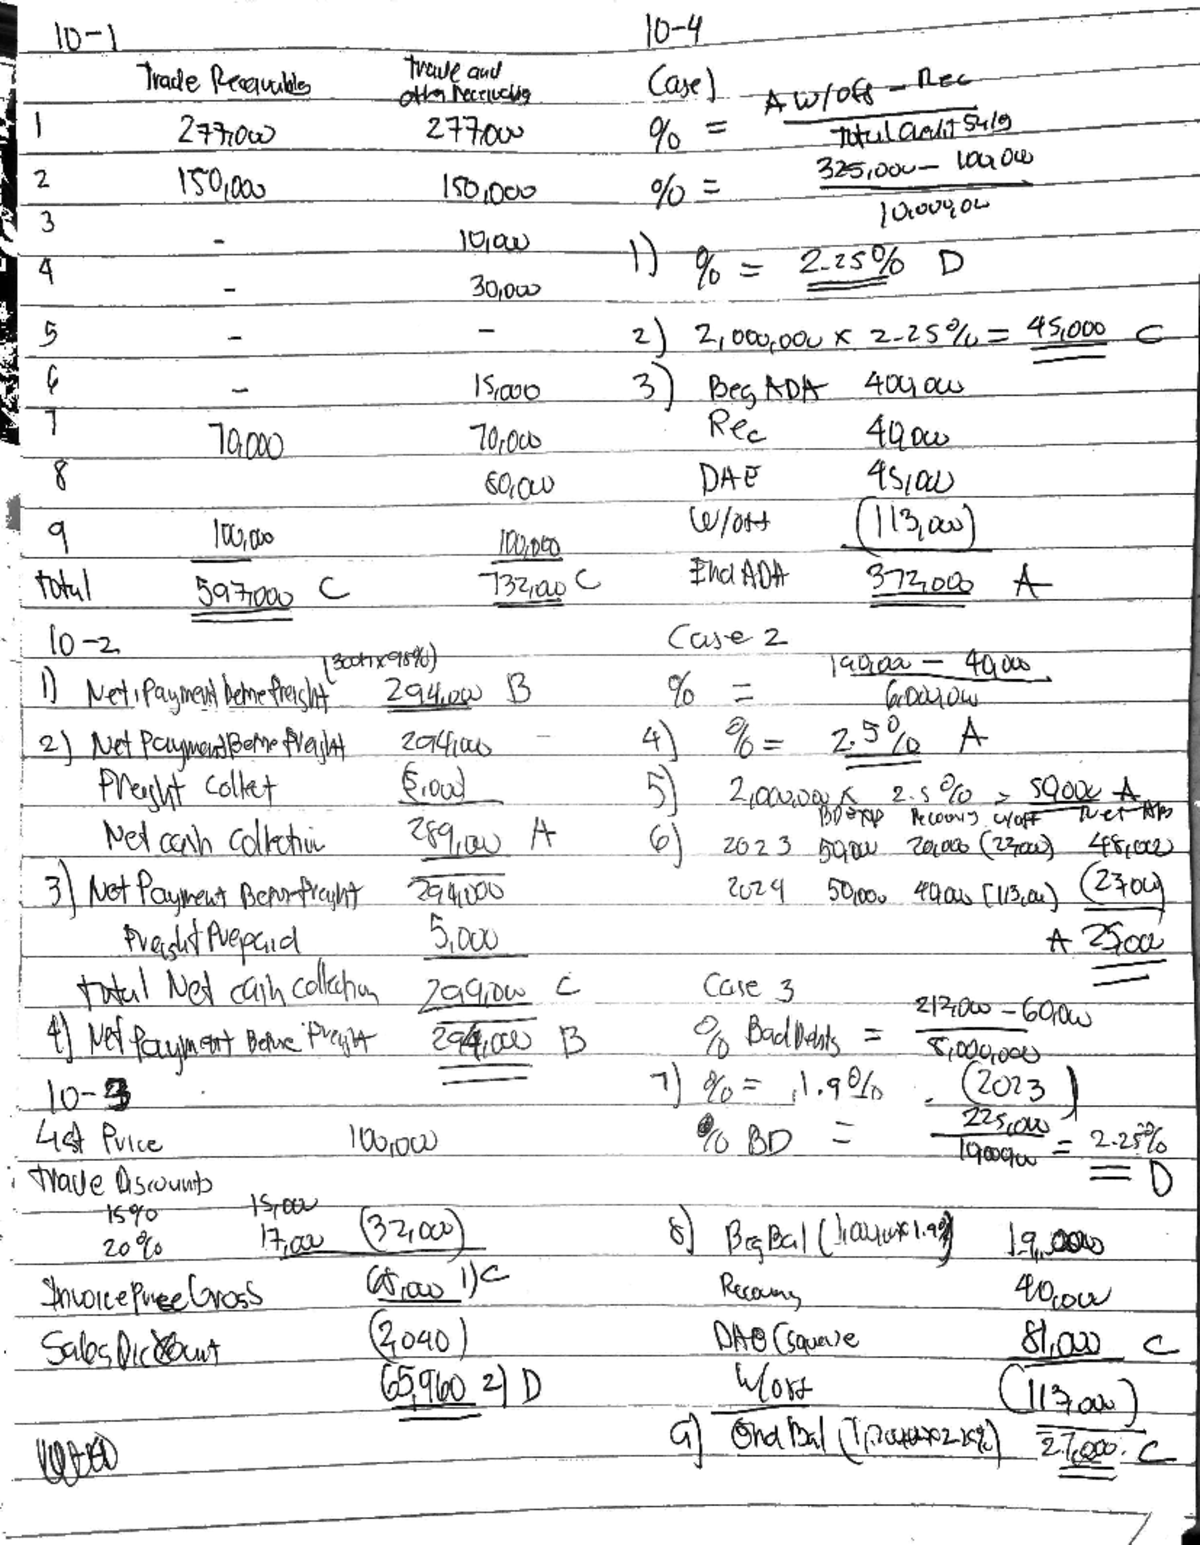 10-1
Trade Receivables
Trade and
other receivables
1 277,000 277,000
2 150,000 150,000
3 - 10,000
4 - 30,000
5 - -
6 - 15,000
7 70,000 70,000
8 80,000
9 100,000 100,000
total 597,000 C 732,000 C
10-2
(300k x 98%)
1) Net Payment before freight 294,000 B
2) Net Payment Before freight 294,000 -
Freight collect (5,000)
Net cash collection 289,000 A
3) Net Payment Before freight 294,000
Freight Prepaid 5,000
total Net cash collection 299,000 C
4) Net payment Before freight 294,000 B
10-3
List Price 100,000
Trade Discounts
15% 15,000
20% 17,000 (32,000)
Invoice Price Gross 68,000 1) C
Sales Discount (2,040)
65,960 2) D
10-4
Case 1
% = A W/off - Rec
Total Credit Sales
% = 325,000 - 100,000
10,000,000
1) % = 2.25% D
2) 2,000,000 x 2.25% = 45,000 C
3) Beg ADA 400,000
Rec 40,000
DAE 45,000
W/off (113,000)
End ADA 372,000 A
Case 2
% = 190,000 - 40,000
6,000,000
4) % = 2.5% A
5) 2,000,000 x 2.5% = 50,000 A
BD exp Recovery w/off Net
6) 2023 50,000 20,000 (22,000) 48,000
2024 50,000 40,000 (113,000) (23,000)
A 25,000
Case 3
% Bad Debts = 212,000 - 60,000
8,000,000
7) % = 1.9% (2023)
% BD = 225,000
10,000,000 = 2.25%
D
8) Beg Bal (1,000,000 x 1.9%) 19,000
Recovery 40,000
DAE (square 81,000 C
W/off (113,000)
9) End Bal (1,200,000 x 2.25%) 27,000 C